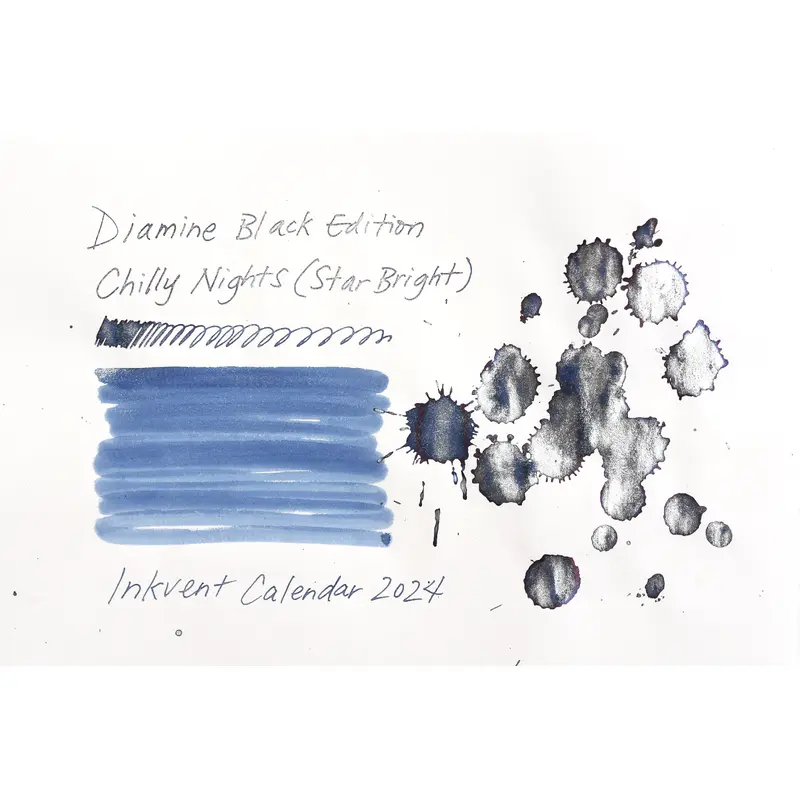 Diamine Black Edition
Chilly Nights (Star Bright)
Inkvent Calendar 2024